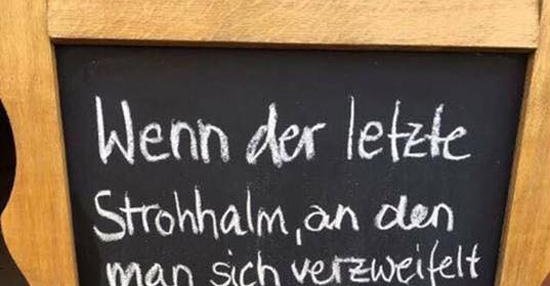 Wenn der letzte
Strohhalm, an den
man sich verzweifelt